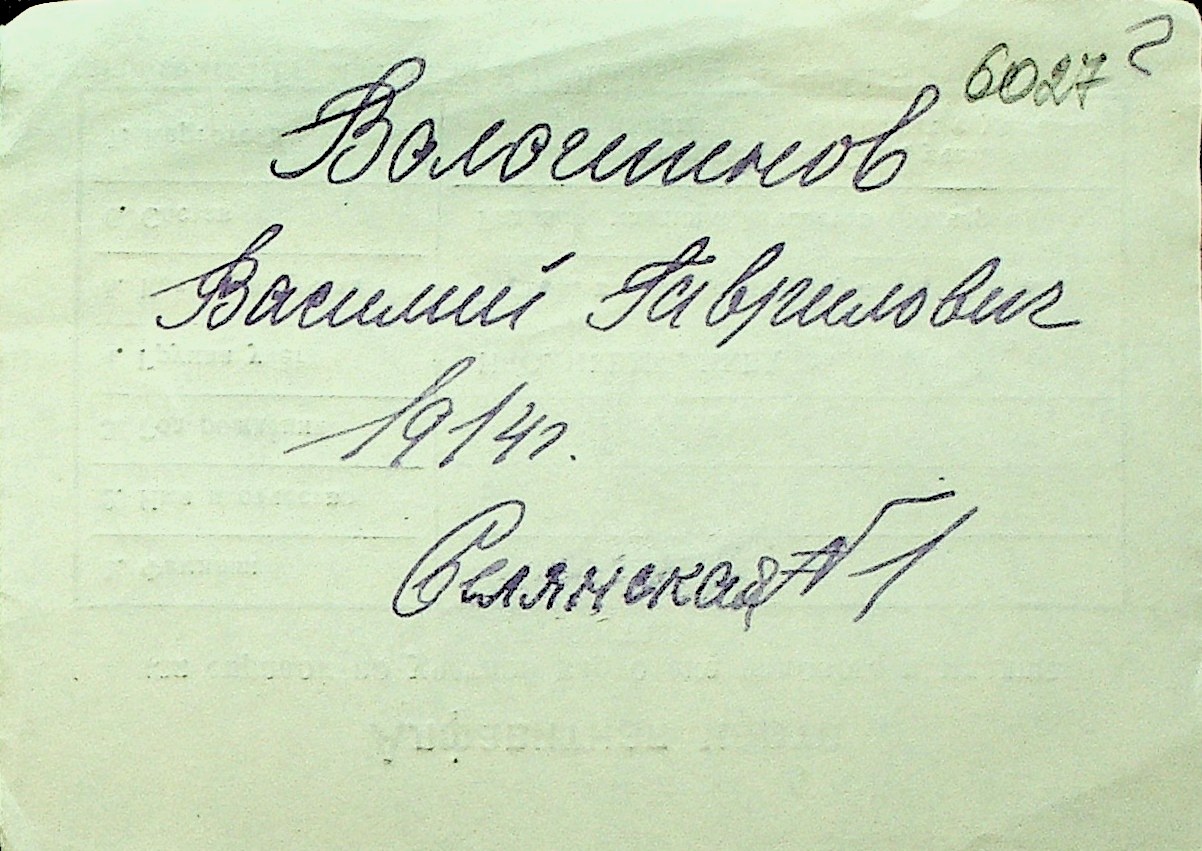 6027
Волошинов
Василий Гаврилович
1914г.
Селянская № 1